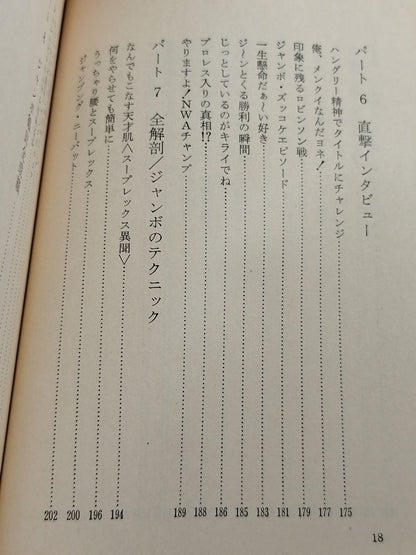 パート 6 直撃インタビュー
ハングリー精神でタイトルにチャレンジ……175
俺、メンクイなんだヨネ!……177
印象に残るロビンソン戦……179
ジャンボ・ズッコケエピソード……181
一生懸命だぁ〜い好き……183
ジ〜ンとくる勝利の瞬間……185
じっとしているのがキライでね……186
プロレス入りの真相!?……188
やりますよ!NWAチャンプ……189
パート 7 全解剖/ジャンボのテクニック
なんでもこなす天才肌〈スープレックス異聞〉……194
何をやらせても簡単に……196
うっちゃり腰とスープレックス……200
ジャンピング・ニーパット……202
18